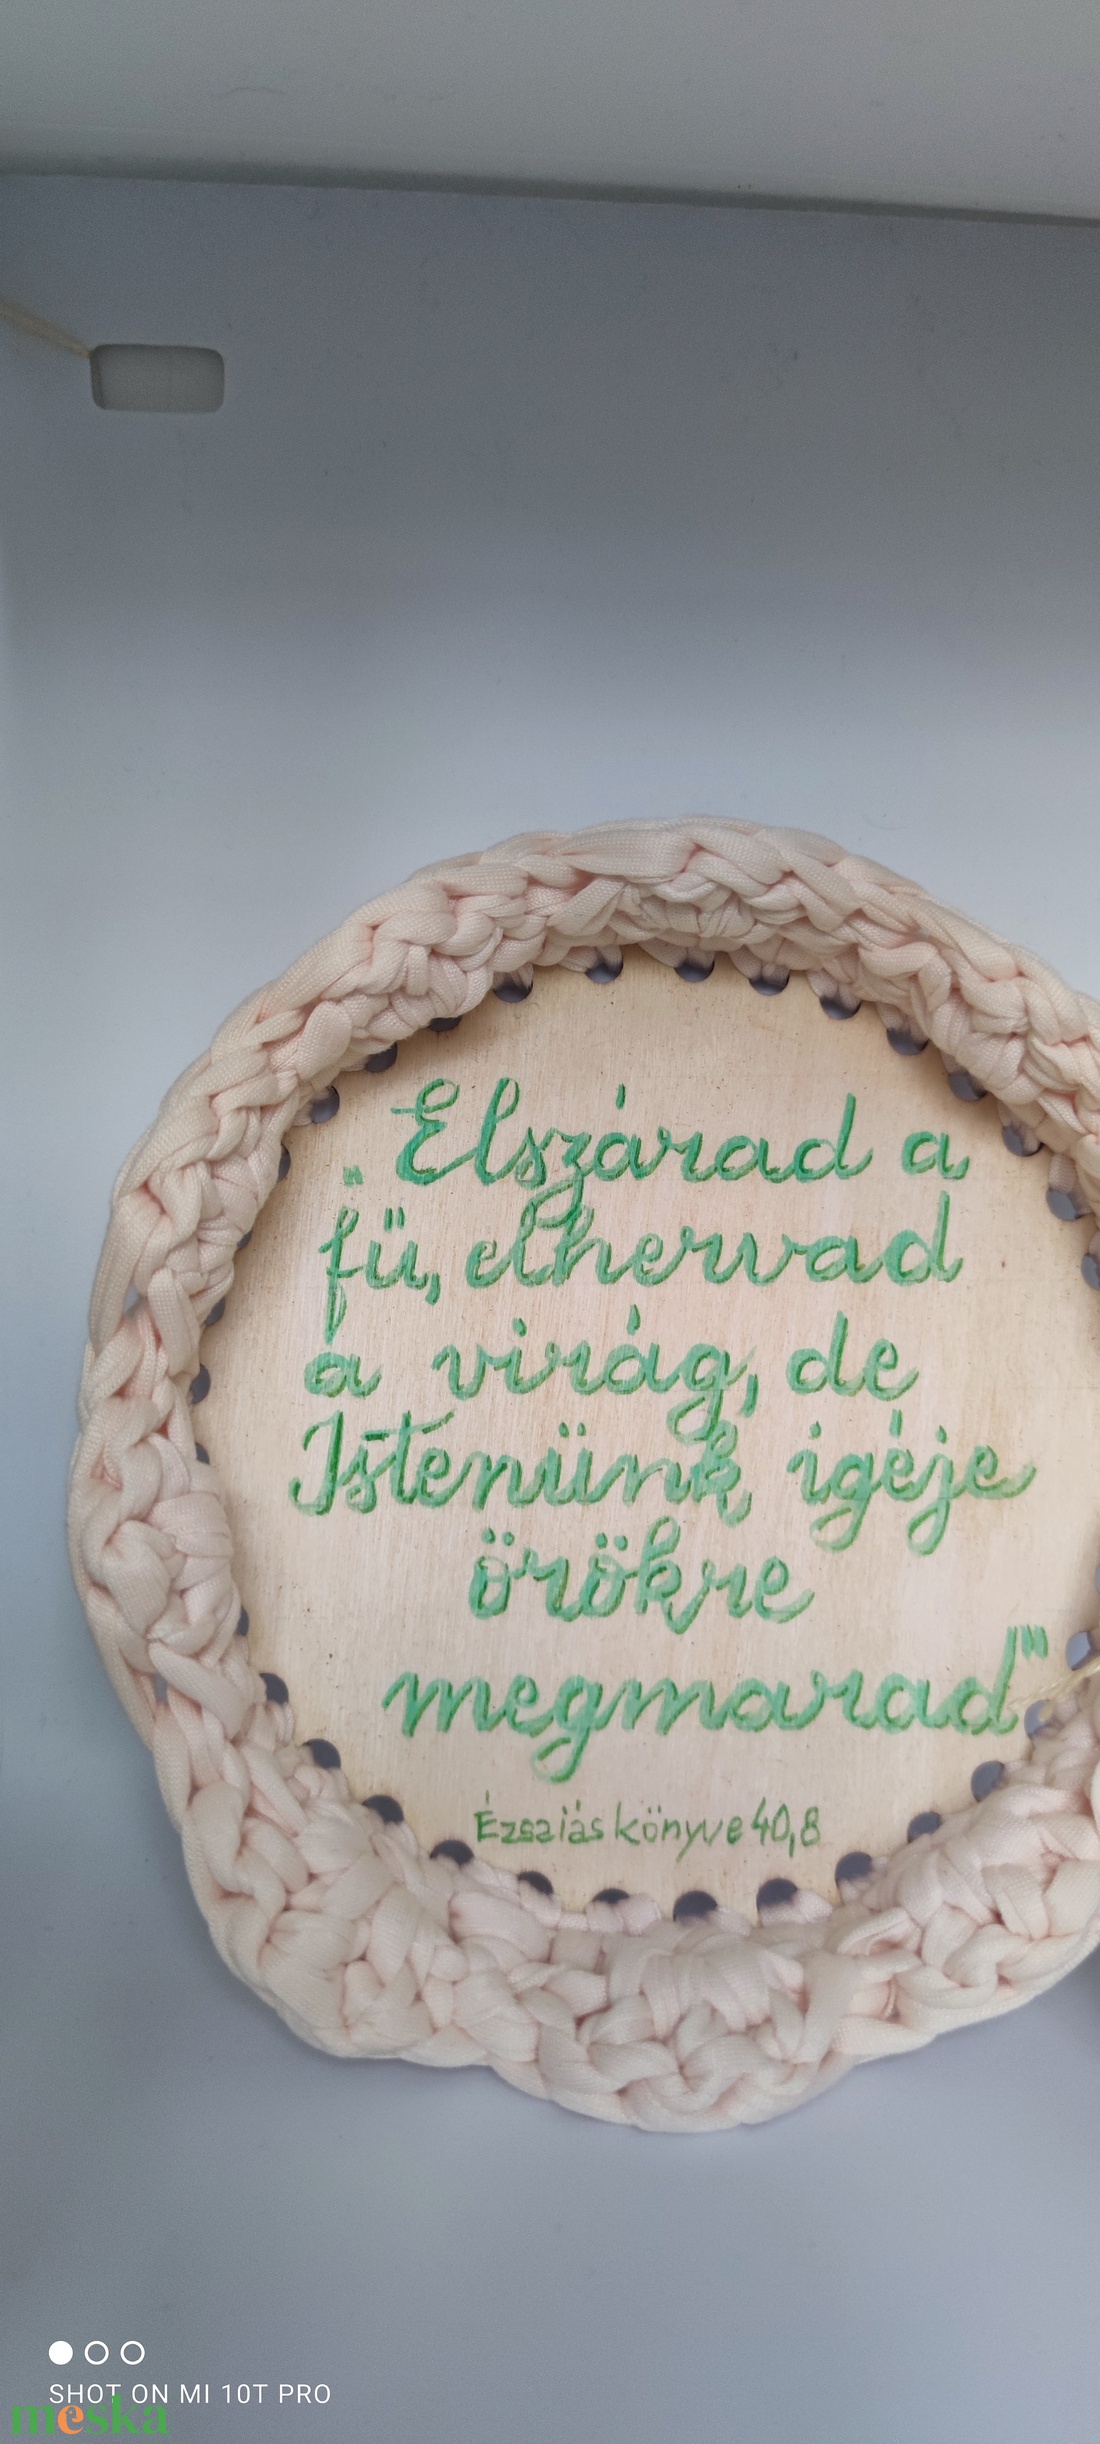 „Elszárad a
fű, elhervad
a virág, de
Istenünk igéje
örökre
megmarad"
Ézsaiás könyve 40,8
SHOT ON MI 10T PRO
meska